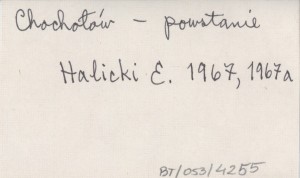 Chochołów – powstanie
Halicki E. 1967, 1967a
BT/053/4255